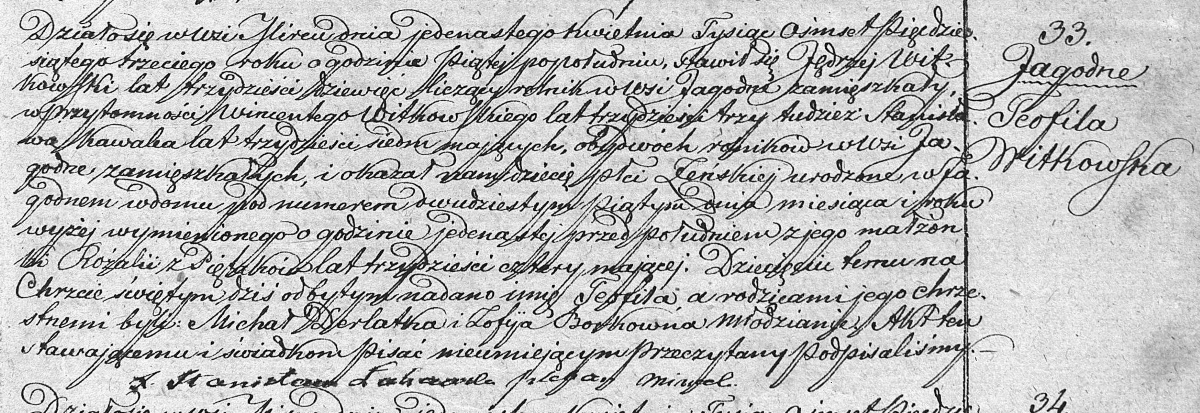 Działo się w Wsi Mircu dnia jedenastego Kwietnia Tysiąc Ośmset Pięćdzie-
siątego trzeciego roku o godzinie Piątej popołudniu, Stawił się Jędrzej Wit-
kowski lat trzydzieści dziewięć liczący rolnik w Wsi Jagodne zamieszkały,
w przytomności Wincentego Witkowskiego lat trzydzieści trzy tudzież Stanisła-
wa Kawalca lat trzydzieści siedm mających, obydwóch rolników w Wsi Ja-
godne zamięszkałych, i okazał nam dziecię płci Żeńskiej urodzone w Ja-
godnem w domu pod numerem dwudziestym Piątym dnia miesiąca i roku
wyżej wymienionego o godzinie jedenastej przed południem z jego małżon-
ki Rozalii z lat trzydzieści cztery mającej. Dziecięciu temu na
Chrzcie świętym dziś odbytym nadano imię Teofila a rodzicami jego chrze-
stnemi byli: Michał Derlatka i Zofija Borkowna Młodzianie, Akt ten
stawającemu i świadkom Pisać nieumiejącym Przeczytany Podpisaliśmy.
X Stanisław
33.
Jagodne
Teofila
Witkowska
Działo się w Wsi
34